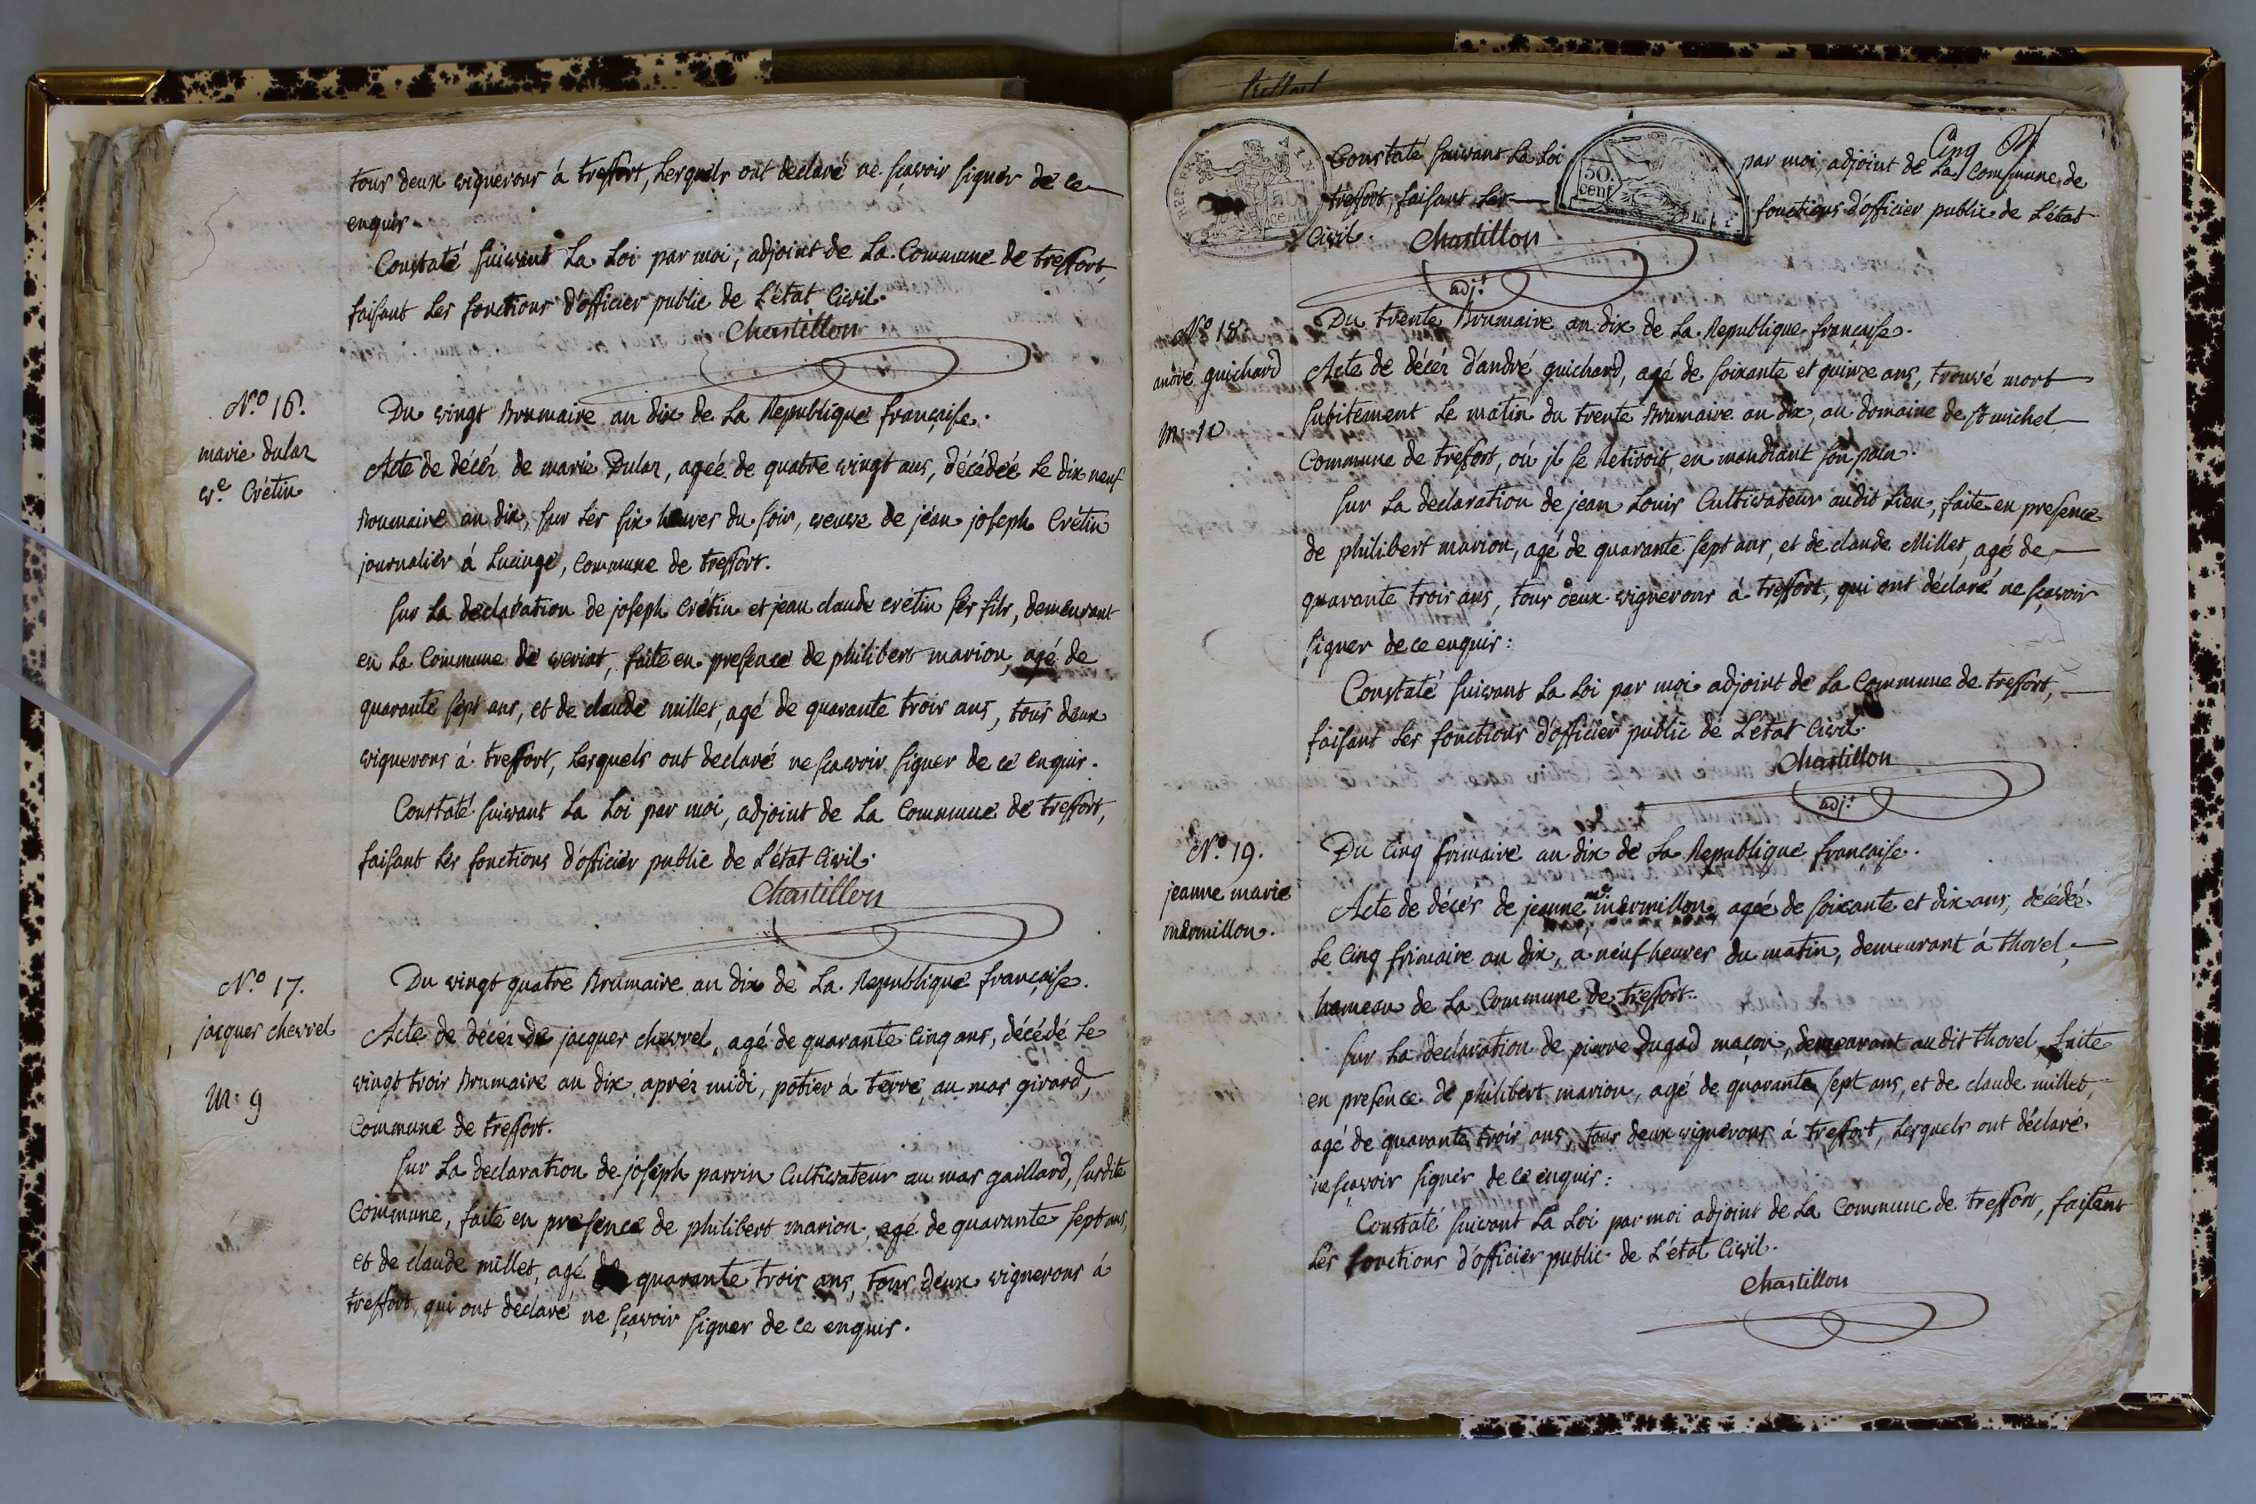 tous deux vignerons à treffort, Lesquels ont declaré ne sçavoir signer de ce
enquis.
Constaté suivant La Loi par moi, adjoint de La Commune de treffort,
faisant Les fonctions d'officier public de L'état Civil.
Chastillon
N.o 16.
marie dulas
v.e Crétin
Du vingt Brumaire an dix de La Republique française.
Acte de décés de marie Dulas, agée de quatre vingt ans, décédée Le dix neuf
Brumaire an dix, sur Les six heures du soir, veuve de jean joseph Crétin
journalier à Lucinge, Commune de treffort.
Sur La declaration de joseph Crétin et jean claude crétin ses fils, demeurant
en La Commune de veriat, faite en presence de philibert marion, agé de
quarante sept ans, et de claude millet, agé de quarante trois ans, tous deux
vignerons à treffort, Lesquels ont declaré ne sçavoir signer de ce enquis.
Constaté suivant La Loi par moi, adjoint de La Commune de treffort,
faisant Les fonctions d'officier public de L'état Civil.
Chastillon
N.o 17.
jacques chevrel
M. 9
Du vingt quatre Brumaire an dix de La Republique française.
Acte de décés de jacques chevrel, agé de quarante Cinq ans, décédé Le
vingt trois Brumaire an dix, aprés midi, potier à terre, au mas girard,
Commune de treffort.
Sur La declaration de joseph parrin Cultivateur au mas gaillard, susdite
Commune, faite en presence de philibert marion, agé de quarante sept ans,
et de claude millet, agé de quarante trois ans, tous deux vignerons à
treffort, qui ont déclaré ne sçavoir signer de ce enquis.
treffort
Cinq
REP. FRA
50 cent
Constaté suivant La Loi par moi, adjoint de La Commune de
treffort, faisant Les fonctions d'officier public de L'état
Civil.
Chastillon
adj.t
N.o 18.
andré guichard
M. 10
Du trente Brumaire an dix de La Republique française.
Acte de décés d'andré guichard, agé de soixante et quinze ans, trouvé mort
subitement Le matin du trente Brumaire an dix, au domaine de St michel
Commune de treffort, où il se Retiroit, en mandiant son pain.
Sur La declaration de jean Louis Cultivateur audit Lieu, faite en presence
de philibert marion, agé de quarante sept ans, et de claude Millet, agé de
quarante trois ans, tous deux vignerons à treffort, qui ont déclaré ne sçavoir
signer de ce enquis:
Constaté suivant La Loi par moi adjoint de La Commune de treffort,
faisant Les fonctions d'officier public de L'état Civil.
Chastillon
adj.t
N.o 19.
jeanne marie
marmillon.
Du Cinq frimaire an dix de La Republique française.
Acte de décés de jeanne m.e marmillon, agée de soixante et dix ans, décédée
Le Cinq frimaire an dix, a neuf heures du matin, demeurant à thorel,
hameau de La Commune de treffort.
Sur La declaration de pierre dugad maçon, demeurant audit thorel, faite
en presence de philibert marion, agé de quarante sept ans, et de claude millet,
agé de quarante trois ans, tous deux vignerons à treffort, Lesquels ont déclaré
ne sçavoir signer de ce enquis:
Constaté suivant La Loi par moi adjoint de La Commune de treffort, faisant
Les fonctions d'officier public de L'état Civil.
Chastillon